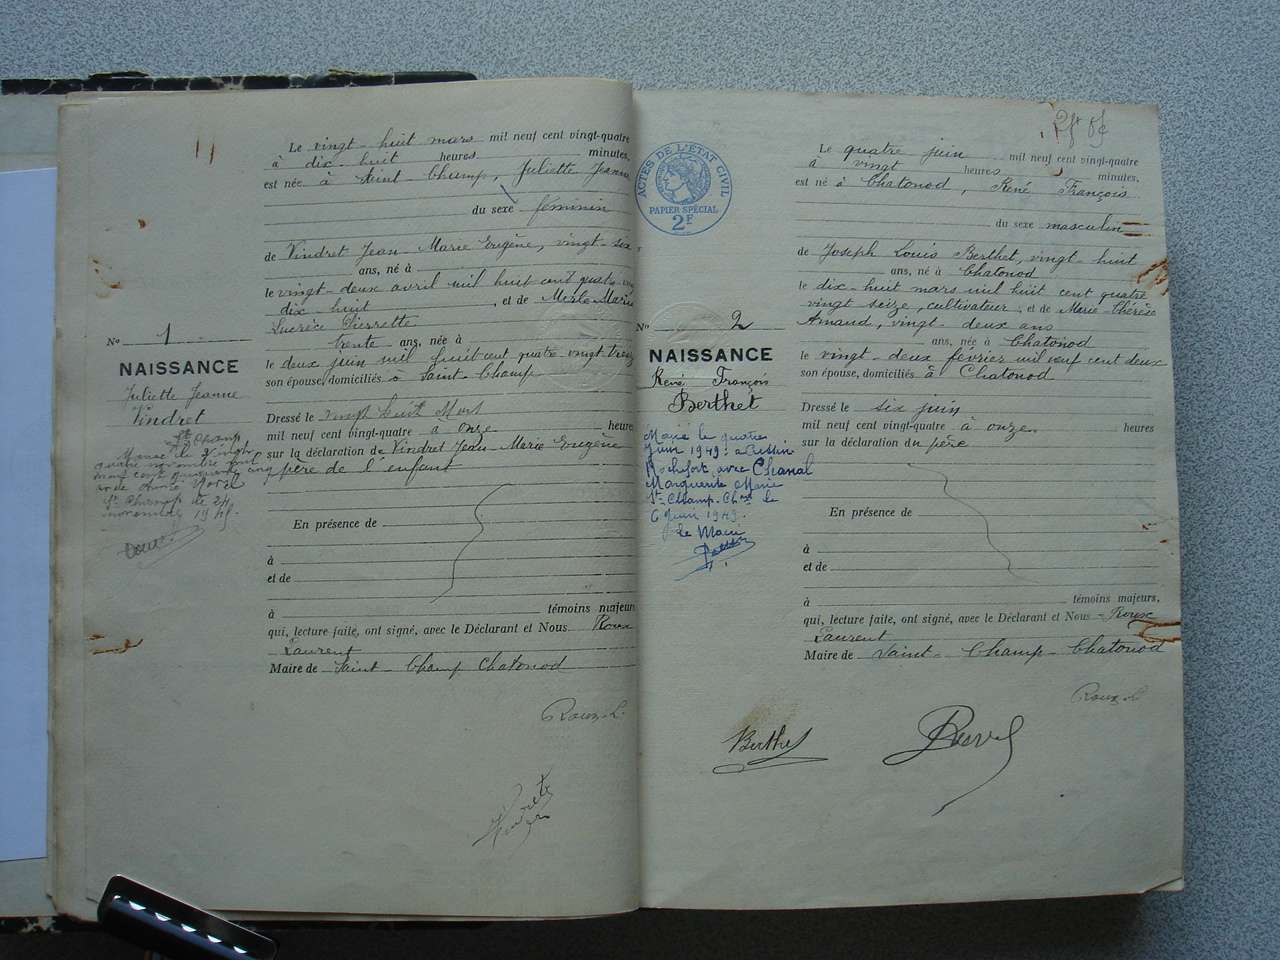 Le vingt-huit mars mil neuf cent vingt-quatre
à dix-huit heures minutes,
est née à Saint Champ, Juliette Jeanne
du sexe féminin
de Vindret Jean-Marie Eugène, vingt-six
ans, né à
le vingt-deux avril mil huit cent quatre
dix-huit, et de Merle Marie
Lucrèce Pierrette
trente ans, née à
le deux juin mil huit cent quatre vingt treize
son épouse, domiciliés à Saint-Champ
Dressé le vingt huit Mars
mil neuf cent vingt-quatre à onze heures
sur la déclaration de Vindret Jean-Marie Eugène
père de l'enfant
En présence de
à
et de
à témoins majeurs
qui, lecture faite, ont signé, avec le Déclarant et Nous Roux
Laurent
Maire de Saint-Champ Chatonod
Roux L.
No 1
NAISSANCE
Juliette Jeanne
Vindret
St Champ
Mariée le vingt
quatre novembre mil
neuf cent quarante cinq
St Champ le 24
novembre 1945
ACTES DE L'ÉTAT CIVIL
PAPIER SPÉCIAL
2F
No 2
NAISSANCE
René François
Berthet
Marié le quatre
Juin 1949 à Cressin
Rochefort avec Chanal
Marguerite Marie
St-Champ-Chod le
6 Juin 1949.
Le Maire
Le quatre juin mil neuf cent vingt-quatre
à vingt heures minutes,
est né à Chatonod, René François
du sexe masculin
de Joseph Louis Berthet, vingt-huit
ans, né à Chatonod
le dix-huit mars mil huit cent quatre
vingt seize, cultivateur, et de Marie-Thérèse
Amand, vingt-deux ans
ans, née à Chatonod
le vingt-deux février mil neuf cent deux
son épouse, domiciliés à Chatonod
Dressé le six juin
mil neuf cent vingt-quatre à onze heures
sur la déclaration du père
En présence de
à
et de
à témoins majeurs,
qui, lecture faite, ont signé, avec le Déclarant et Nous Roux
Laurent
Maire de Saint-Champ-Chatonod
Roux L
Berthet